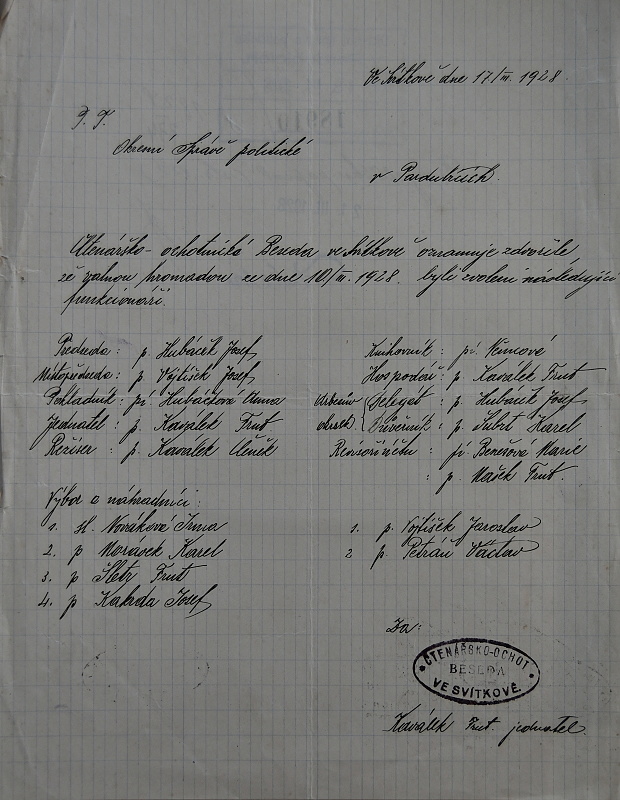 Ve Svítkově dne 17/III. 1928.
P. T.
Okresní Správě politické
v Pardubicích.
Čtenářsko-ochotnická Beseda ve Svítkově oznamuje zdvořile,
že valnou hromadou ze dne 10/III. 1928. byli zvoleni následující
funkcionáři.
Předseda: p. Hubáček Josef
Místopředseda: p. Vojtíšek Josef
Pokladník: pí Hubáčková Anna
Jednatel: p. Kaválek Frut
Režiser: p. Kavalek Čeněk
Knihovník: pí. Němcová
Hospodář: p. Kavalek Frut
delegát: p. Hubáček Josef
Důvěrník: p. Šubrt Karel
okrsek
Revisoři účtu: pí Benešová Marie
: p. Mašek Frut.
Výbor a náhradníci:
1. sl. Nováková Irma
2. p Morávek Karel
3. p Frut
4. p Josef
1. p. Vojtíšek Jaroslav
2 p. Petráň Václav
Za:
ČTENÁŘSKO-OCHOT.
BESEDA
VE SVÍTKOVĚ.
Kaválek Frut. jednatel.